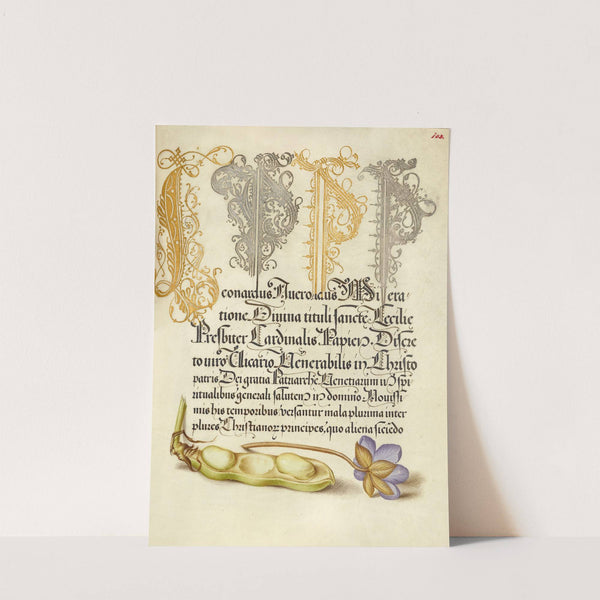 L P P P
eonardus Miſera-
tione Divina tituli ſancte Cecilie
Preſbiter Cardinalis Papien Diſcre
to viro Vicario Venerabilis in Chriſto
patris Dei gratia Patriarche Venetiarum in ſpi
ritualibus generali ſalutem in domino Noviſſi
mis his temporibus verſantur mala plurima inter
plures Chriſtianor principes, quo aliena